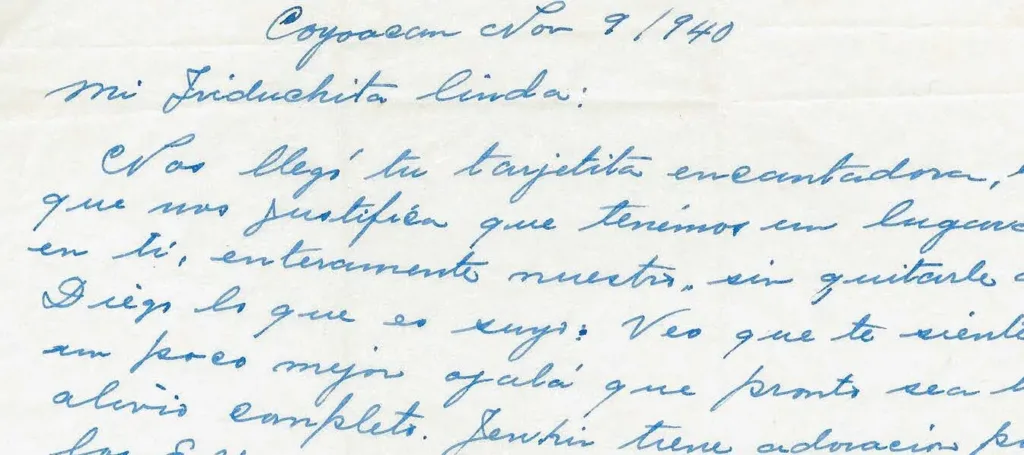 Coyoacan Nov 9/940
Mi Friduchita linda:
Nos llegó tu tarjetita encantadora,
que nos justifica que tenémos un
en ti, enteramente nuestro, sin quitarle
Diégo lo que es suyo: Veo que te
un poco mejor ojalá que pronto sea
alivio completo. tiene adoracion